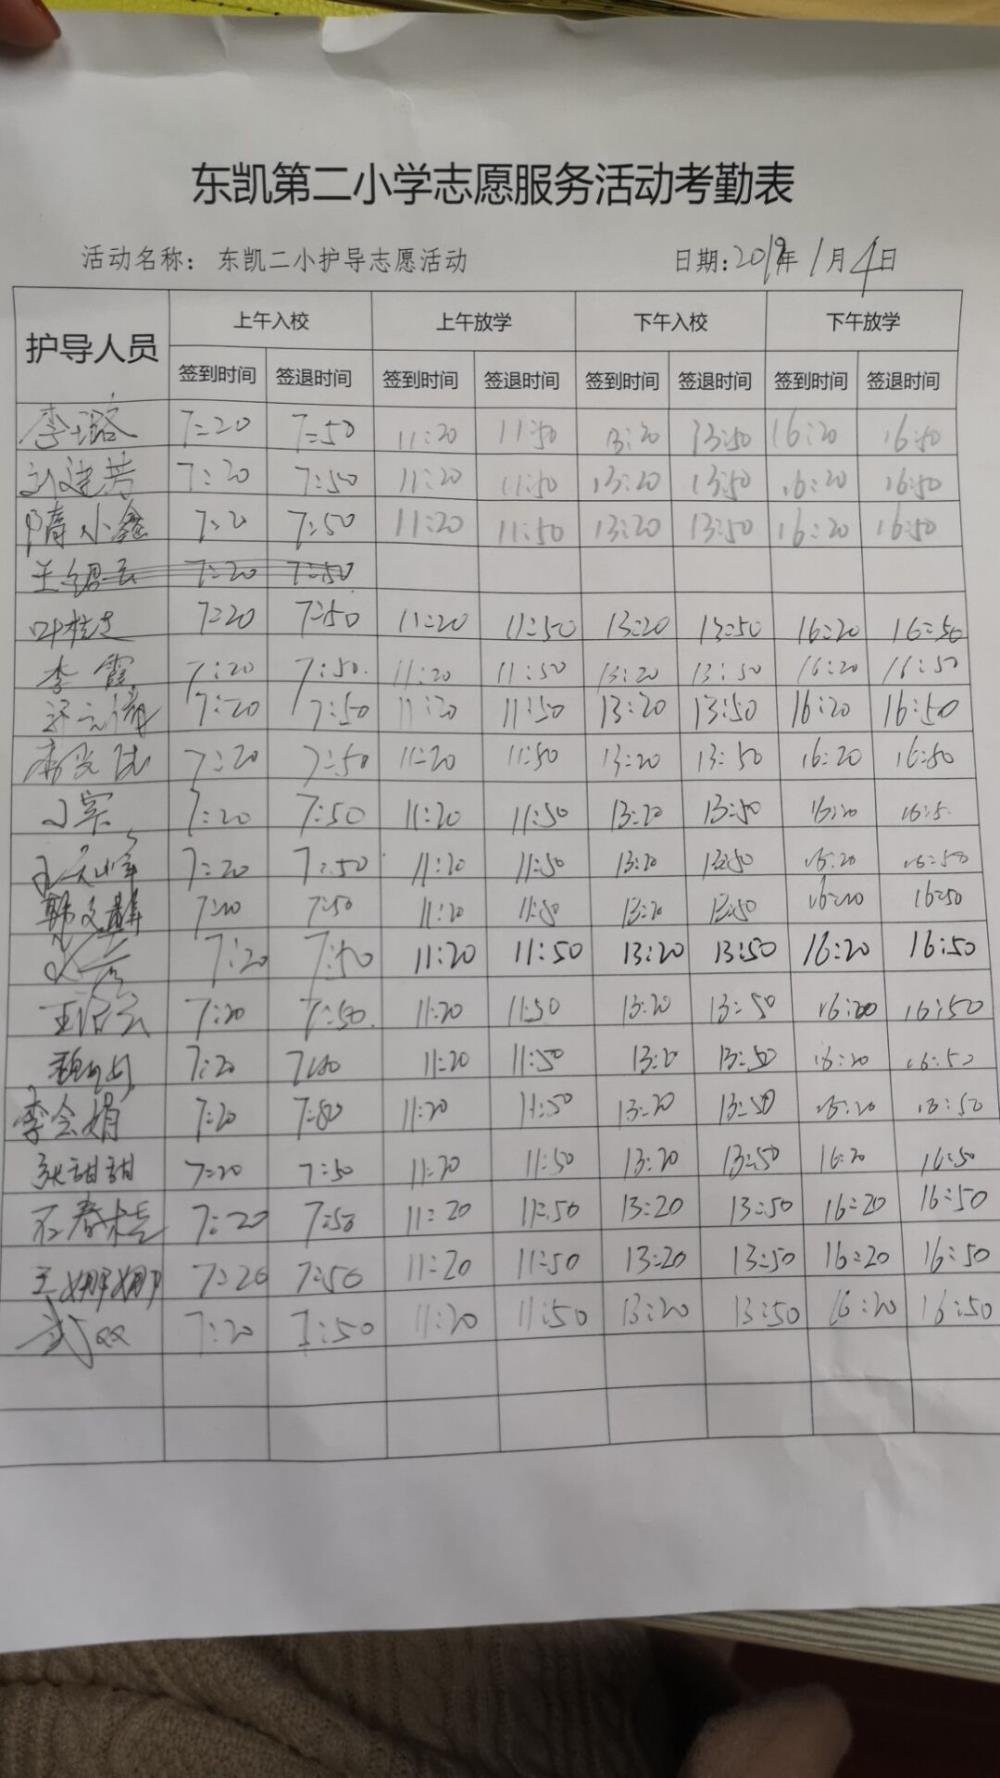 东凯第二小学志愿服务活动考勤表
活动名称： 东凯二小护导志愿活动 日期:2019年1月4日
护导人员 上午入校 上午放学 下午入校 下午放学
签到时间 签退时间 签到时间 签退时间 签到时间 签退时间 签到时间 签退时间
李璐 7:20 7:50 11:20 11:50 13:20 13:50 16:20 16:50
刘建芳 7:20 7:50 11:20 11:50 13:20 13:50 16:20 16:50
隋小鑫 7:2 7:50 11:20 11:50 13:20 13:50 16:20 16:50
7:20 7:50
叶桂芝 7:20 7:50 11:20 11:50 13:20 13:50 16:20 16:50
李霞 7:20 7:50. 11:20 11:50 13:20 13:50 16:20 16:50
7:20 7:50 11:20 11:50 13:20 13:50 16:20 16:50
7:20 7:50 11:20 11:50 13:20 13:50 16:20 16:50
7:20 7:50 11:20 11:50 13:20 13:50 16:20 16:5
7:20 7:50 11:20 11:50 13:20 13:50 16:20 16:50
韩文 7:20 7:50 11:20 11:50 13:20 13:50 16:20 16:50
7:20 7:50 11:20 11:50 13:20 13:50 16:20 16:50
7:20 7:50. 11:20 11:50 13:20 13:50 16:20 16:50
7:20 7:50 11:20 11:50 13:20 13:50 16:20 16:50
李会娟 7:20 7:50 11:20 11:50 13:20 13:50 16:20 16:50
张甜甜 7:20 7:50 11:20 11:50 13:20 13:50 16:20 16:50
石春桂 7:20 7:50 11:20 11:50 13:20 13:50 16:20 16:50
王娜娜 7:20 7:50 11:20 11:50 13:20 13:50 16:20 16:50
武 7:20 7:50 11:20 11:50 13:20 13:50 16:20 16:50